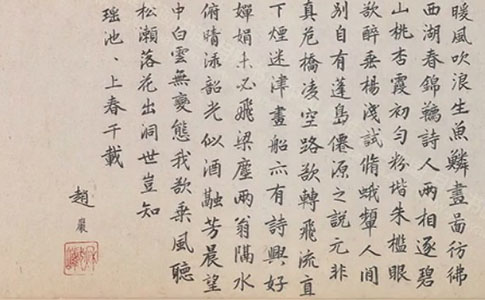 暖風吹浪生魚鱗畫啚彷彿
西湖春錦韉詩人兩相逐碧
山桃杏霞初勻粉堦朱檻眼
欲醉垂楊淺試脩蛾顰人間
別自有蓬島僊源之說元非
真危橋凌空路欲轉飛流直
下煙迷津畫船亦有詩興好
嬋娟未必飛梁塵兩翁隔水
俯晴渌韶光似酒融芳晨望
中白雲無變態我欲乘風聽
松瀨落花出洞世豈知
瑶池、上春千載
趙巖